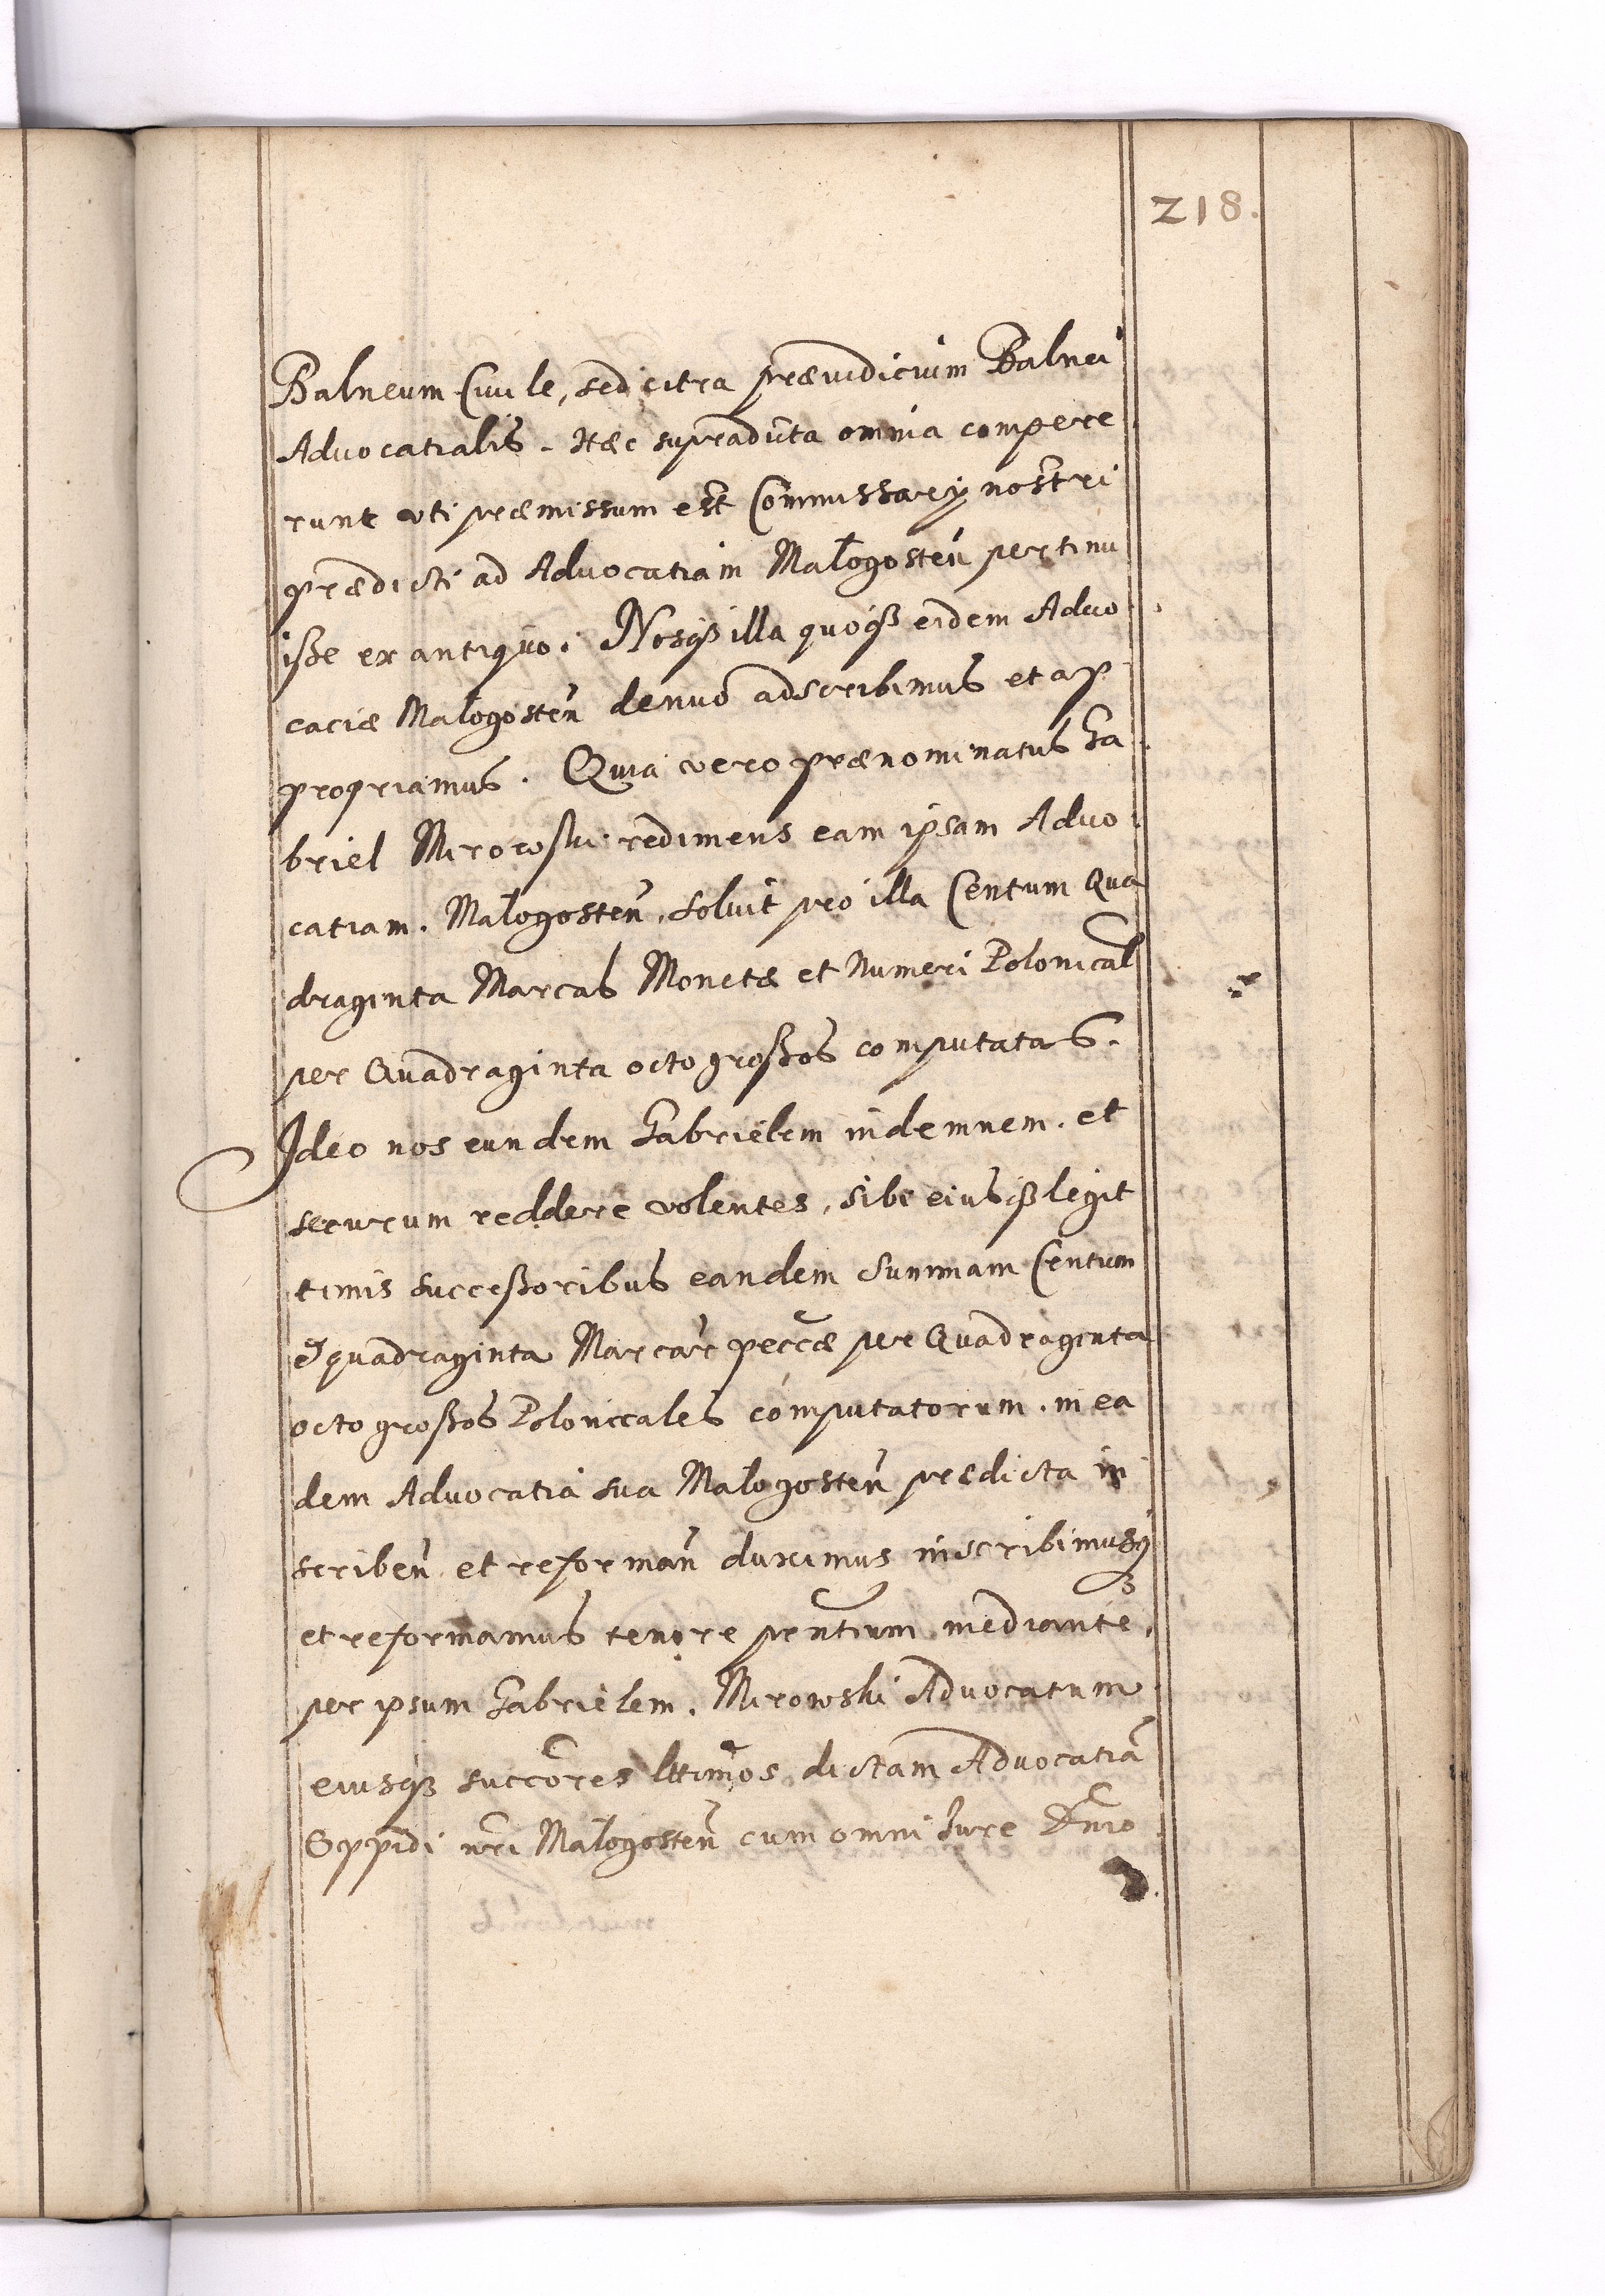 218.
Balneum Ciuile, sed citra præiudicium Balnei
Advocatialis. Hæc supradicta omnia compere
runt vti præmissum est Commissarij nostri
prædicti ad Advocatiam Małogosteń pertinu
iße ex antiquo. Nosqȝ illa quoqȝ eidem Advo
caciæ Małogosteń denuo adscribimus et ap
propriamus. Quia vero prænominatus Ga
briel Mirowski redimens eam ipsam Advo
catiam. Małogosteń, soluit pro illa Centum Qua
draginta Marcas Monetæ et Numeri Polonical
per Quadraginta octo großos computatas.
Ideo nos eundem Gabrielem indemnem. et
securum reddere volentes, sibi eiusqȝ legit
timis succeßoribus eandem Summam Centum
et quadraginta Marcar̃ peccæ per Quadraginta
octo großos Polonicales computatorum. in ea
dem Advocatia sua Małogosteń prædicta in
scribeń et reformań duximus inscribimusqȝ
et reformamus tenore pñtium mediante,
per ipsum Gabrielem. Mirowski Advocatum
eiusqȝ succores lttimos dictam Advocatiã
Oppidi nri Małogosteń cum omni Iure Dñio